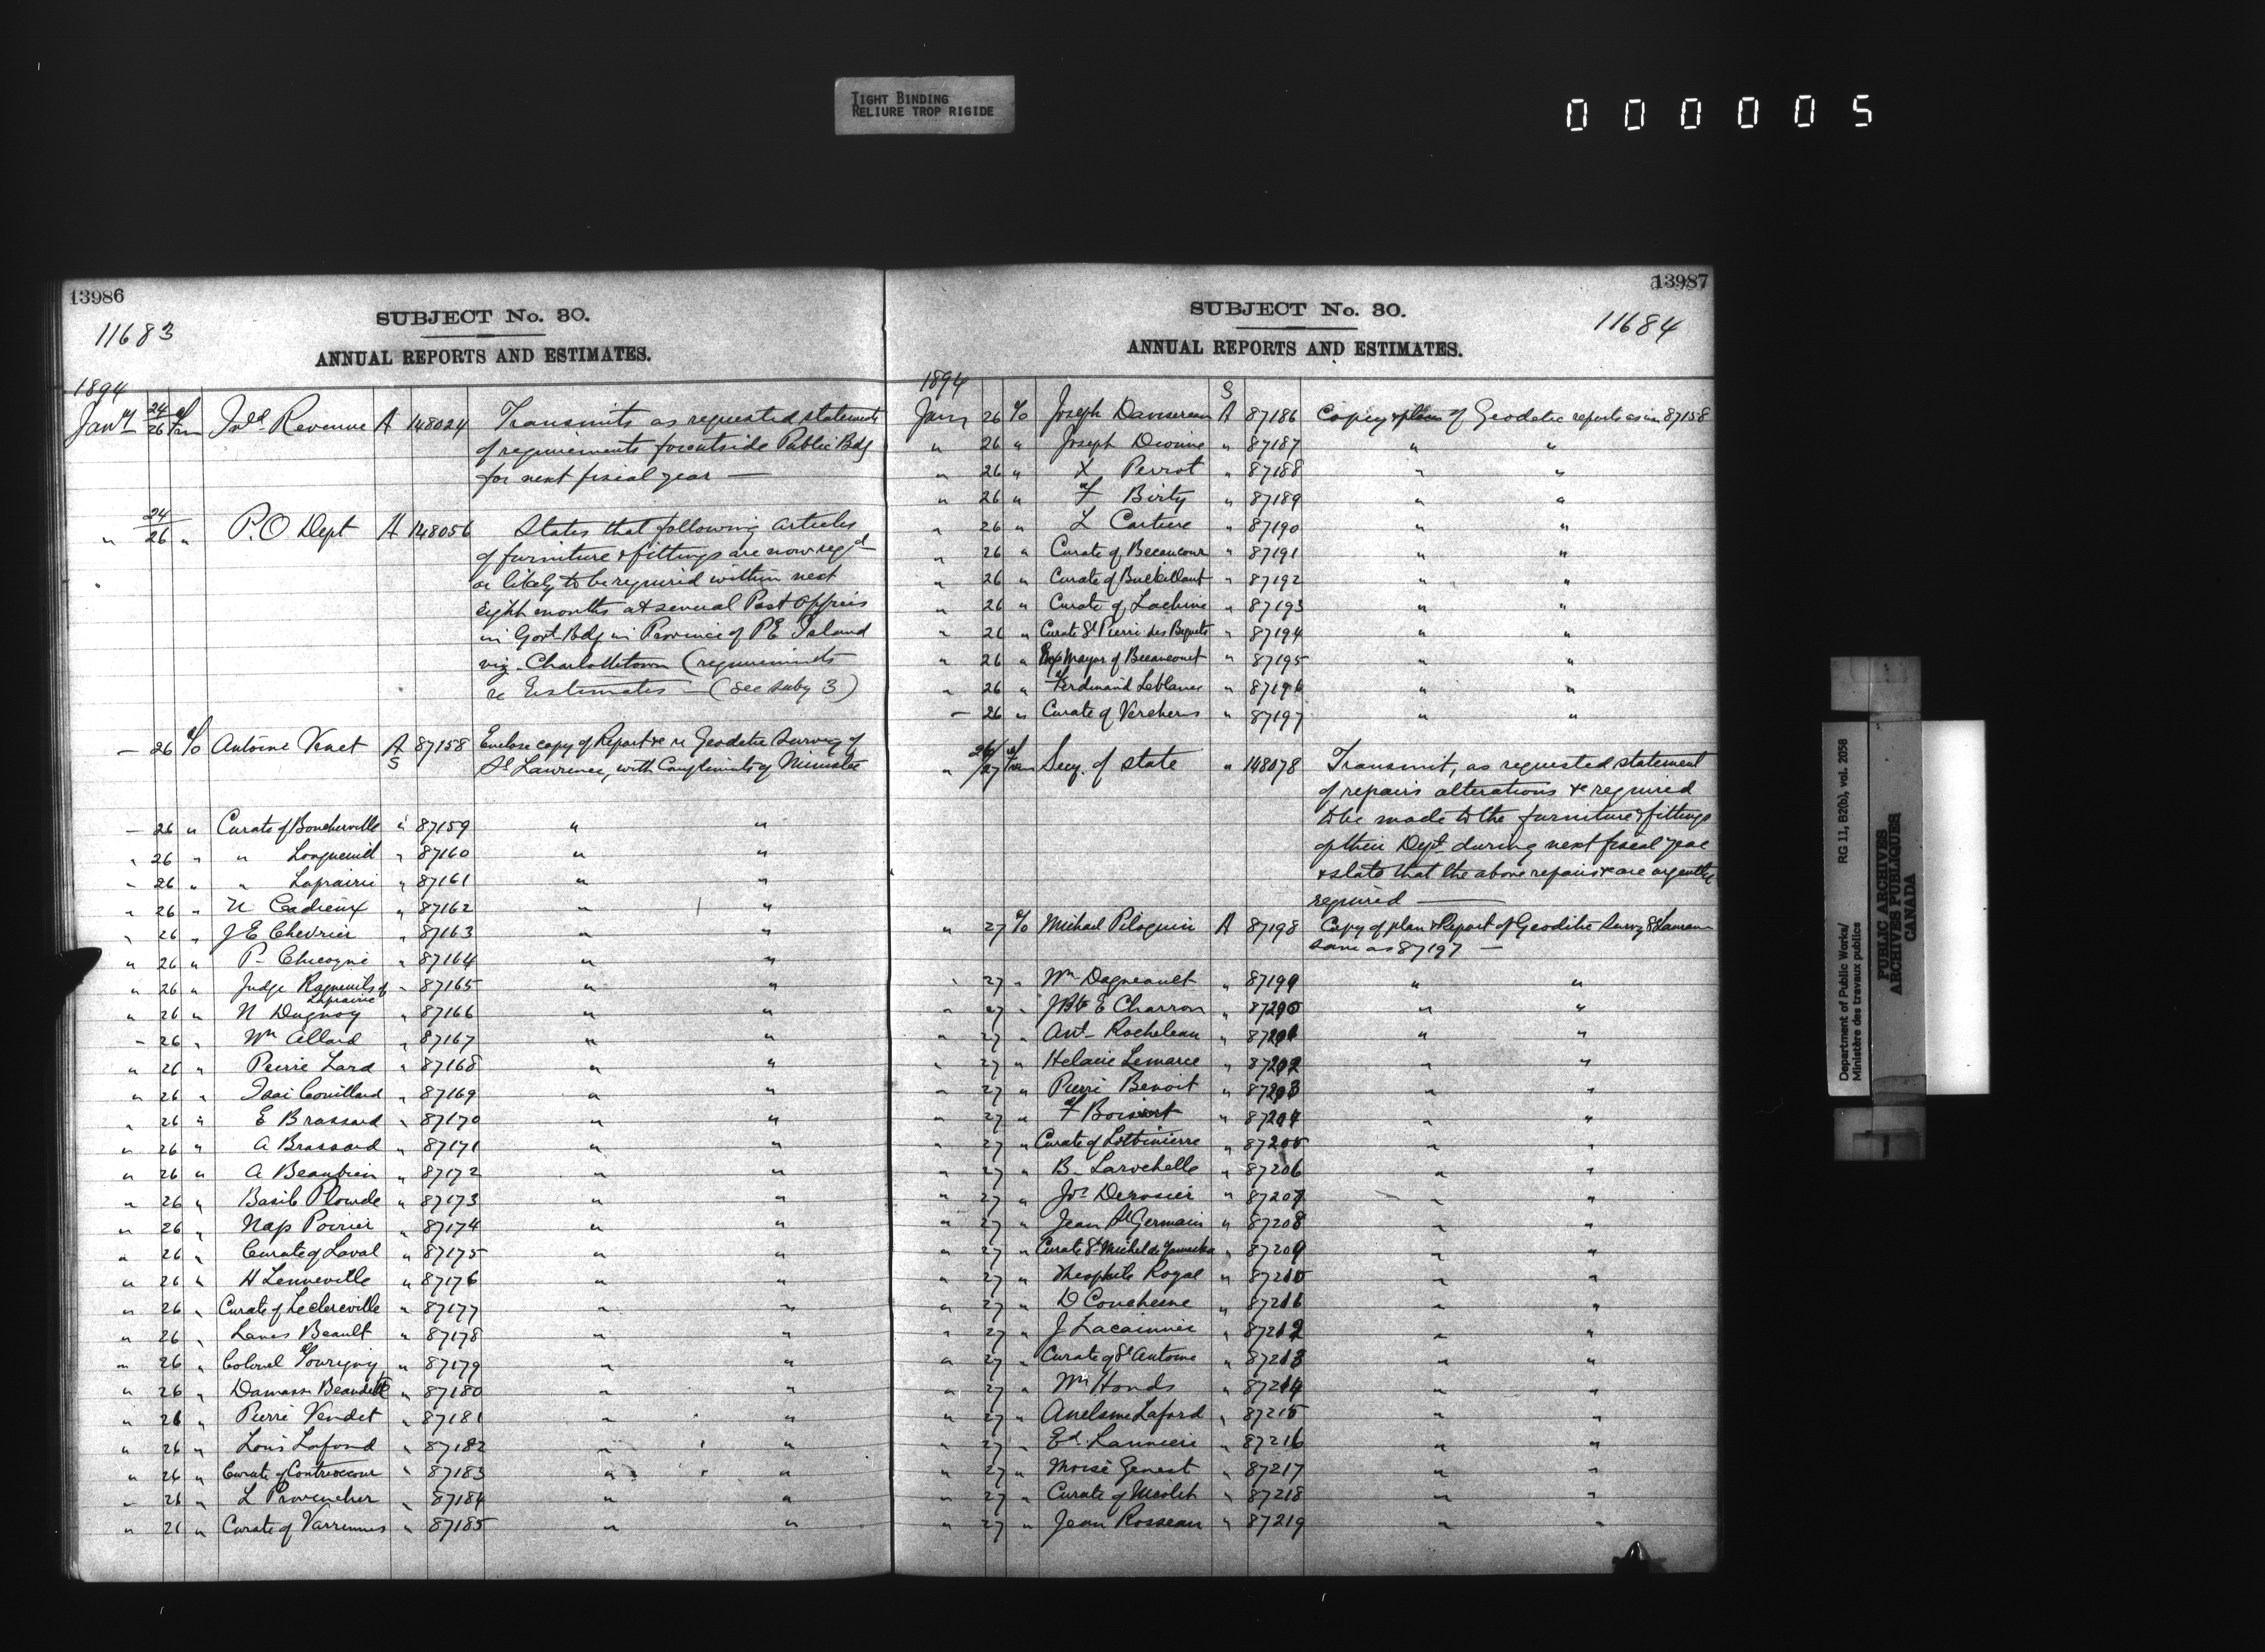 TIGHT BINDING
RELIURE TROP RIGIDE
000005
13986
11683
SUBJECT No. 30.
ANNUAL REPORTS AND ESTIMATES.
1894
Jany 24/26 of Jan Inld. Revenue A 148024 Transmits as requested statements
of requirements for outside Public Bdg
for next fiscal year —
" 24/26 " P.O Dept A 148056 States that following articles
of furniture & fittings are now reqd
or likely to be required within next
eight months at several Post Offices
in Govt Bdg in Province of PE Island
viz - Charlottetown (requirements
re Estimates — (See suby 3)
— 26 Antoine Venet A 87158 Enclose copy of Report &c re Geodetic Survey of
S St Lawrence, with Compliments of Minister
— 26 " Curate of Boucherville " 87159 " "
" 26 " " Longueuil " 87160 " "
" 26 " " Laprairie " 87161 " "
" 26 " N Cadieux " 87162 " "
" 26 " J E Chevrier " 87163 " "
" 26 " P- Chicogni " 87164 " "
" 26 " Judge of " 87165 " "
Laprairie
" 26 " N Duguay " 87166 " "
— 26 " Wm Allard " 87167 " "
" 26 " Pierre Lard " 87168 " "
" 26 " Isai Couillard " 87169 " "
" 26 " E Brassard " 87170 " "
" 26 " A Brassard " 87171 " "
" 26 " A Beaubien " 87172 " "
" 26 " Basile Plourde " 87173 " "
" 26 " Nap Poirier " 87174 " "
" 26 " Curate of Laval " 87175 " "
" 26 " H Lenneville " 87176 " "
" 26 " Curate of Leclercville " 87177 " "
" 26 " Beault " 87178 " "
" 26 " Colonel Gourigny " 87179 " "
" 26 " Damasse Beaudette " 87180 " "
" 26 " Pierre Vendet " 87181 " "
" 26 " Louis Lafond " 87182 " "
" 26 " Curate of Contrecoeur " 87183 " "
" 26 " L Provencher " 87184 " "
" 26 " Curate of Varrennes " 87185 " "
13987
11684
SUBJECT No. 30.
ANNUAL REPORTS AND ESTIMATES.
1894 S
Jany 26 Joseph Dansereau A 87186 Copy & plan of Geodetic reports as in 87158
" 26 " Joseph Dionne " 87187 " "
" 26 " X Perrot " 87188 " "
" 26 " F Birty " 87189 " "
" 26 " L Cartiere " 87190 " "
" 26 " Curate of Becancour " 87191 " "
" 26 " Curate of " 87192 " "
" 26 " Curate of Lachine " 87193 " "
" 26 " Curate St Pierre des Bequets " 87194 " "
" 26 " Mayor of Becancourt " 87195 " "
" 26 " Ferdinand Leblanc " 87196 " "
— 26 " Curate of Vercheres " 87197 " "
" 26/27 of Jan Secy. of State " 148078 Transmit, as requested statement
of repairs alterations &c required
to be made to the furniture & fittings
of their Dept. during next fiscal year
& state that the above repairs &c are urgently
required —
" 27 Michael Piloquin A 87198 Copy of plan & Report of Geodetic Survey St Lawren
same as 87197 —
" 27 " Wm Dagneault " 87199 " "
" 27 " J Bte E Charron " 87200 " "
" 27 " Ant- Rocheleau " 87201 " "
" 27 " Helaire Lemarce " 87202 " "
" 27 " Pierre Benoit " 87203 " "
" 27 " F Boisvert " 87204 " "
" 27 " Curate of Lotbinierre " 87205 " "
" 27 " B- Larochelle " 87206 " "
" 27 " Jos Derosier " 87207 " "
" 27 " Jean St Germain " 87208 " "
" 27 " Curate St Michel de Yamaska " 87209 " "
" 27 " Theophile Royal " 87210 " "
" 27 " D Couchesne " 87211 " "
" 27 " J " 87212 " "
" 27 " Curate of St Antoine " 87213 " "
" 27 " Wm Honds " 87214 " "
" 27 " Anelsme Laford " 87215 " "
" 27 " Ed. " 87216 " "
" 27 " Moise Genest " 87217 " "
" 27 " Curate of Nicolet " 87218 " "
" 27 " Jean Rosseau " 87219 " "
Department of Public Works/ RG 11, B2(b), vol. 2058
Ministère des travaux publics
PUBLIC ARCHIVES
ARCHIVES PUBLIQUES
CANADA